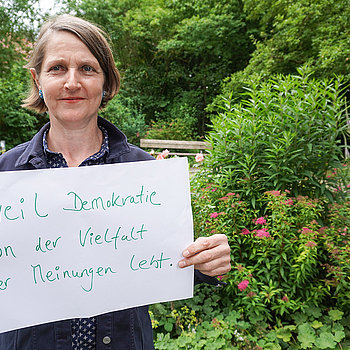 eil Demokratie
on der Vielfalt
er Meinungen lebt.